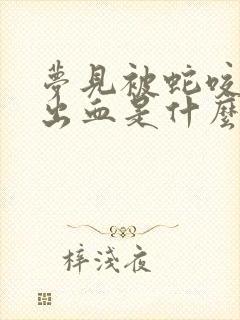 夢見被蛇咬
出血是什麼
梓淺夜